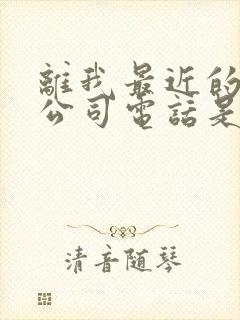 離我最近的
公司電話是
清音随琴